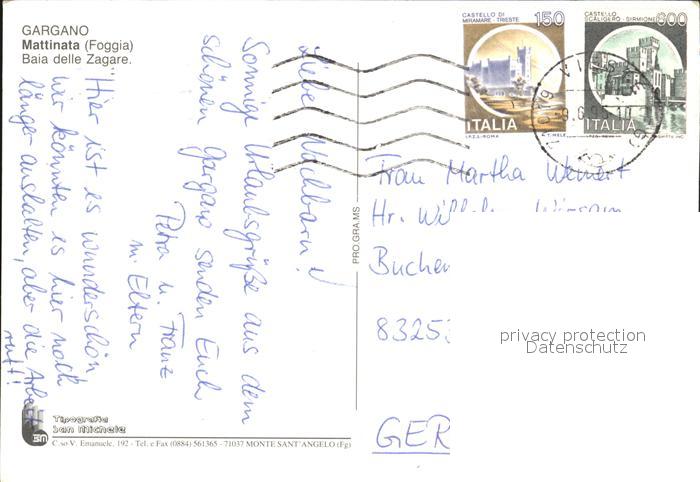 GARGANO
Mattinata (Foggia)
Baia delle Zagare.
CASTELLO DI
MIRAMARE - TRIESTE
150
ITALIA
I.P.Z.S.-ROMA
CASTELLO
SCALIGERO - SIRMIONE
ITALIA
Liebe Nachbarn!
Sonnige Urlaubsgrüße aus dem
schönen Gargano senden Euch
Petra u. Franz
m. Eltern
Hier ist es wunderschön
wir könnten es hier noch
länger aushalten, aber die Arbeit
ruft!!
PRO.GRA.MS
Frau Martha Weinert
Hr.
Buchen
8325
GER
privacy protection
Datenschutz
3M
Tipografia
San Michele
C.so V. Emanuele, 192 - Tel. e Fax (0884) 561365 - 71037 MONTE SANT'ANGELO (Fg)